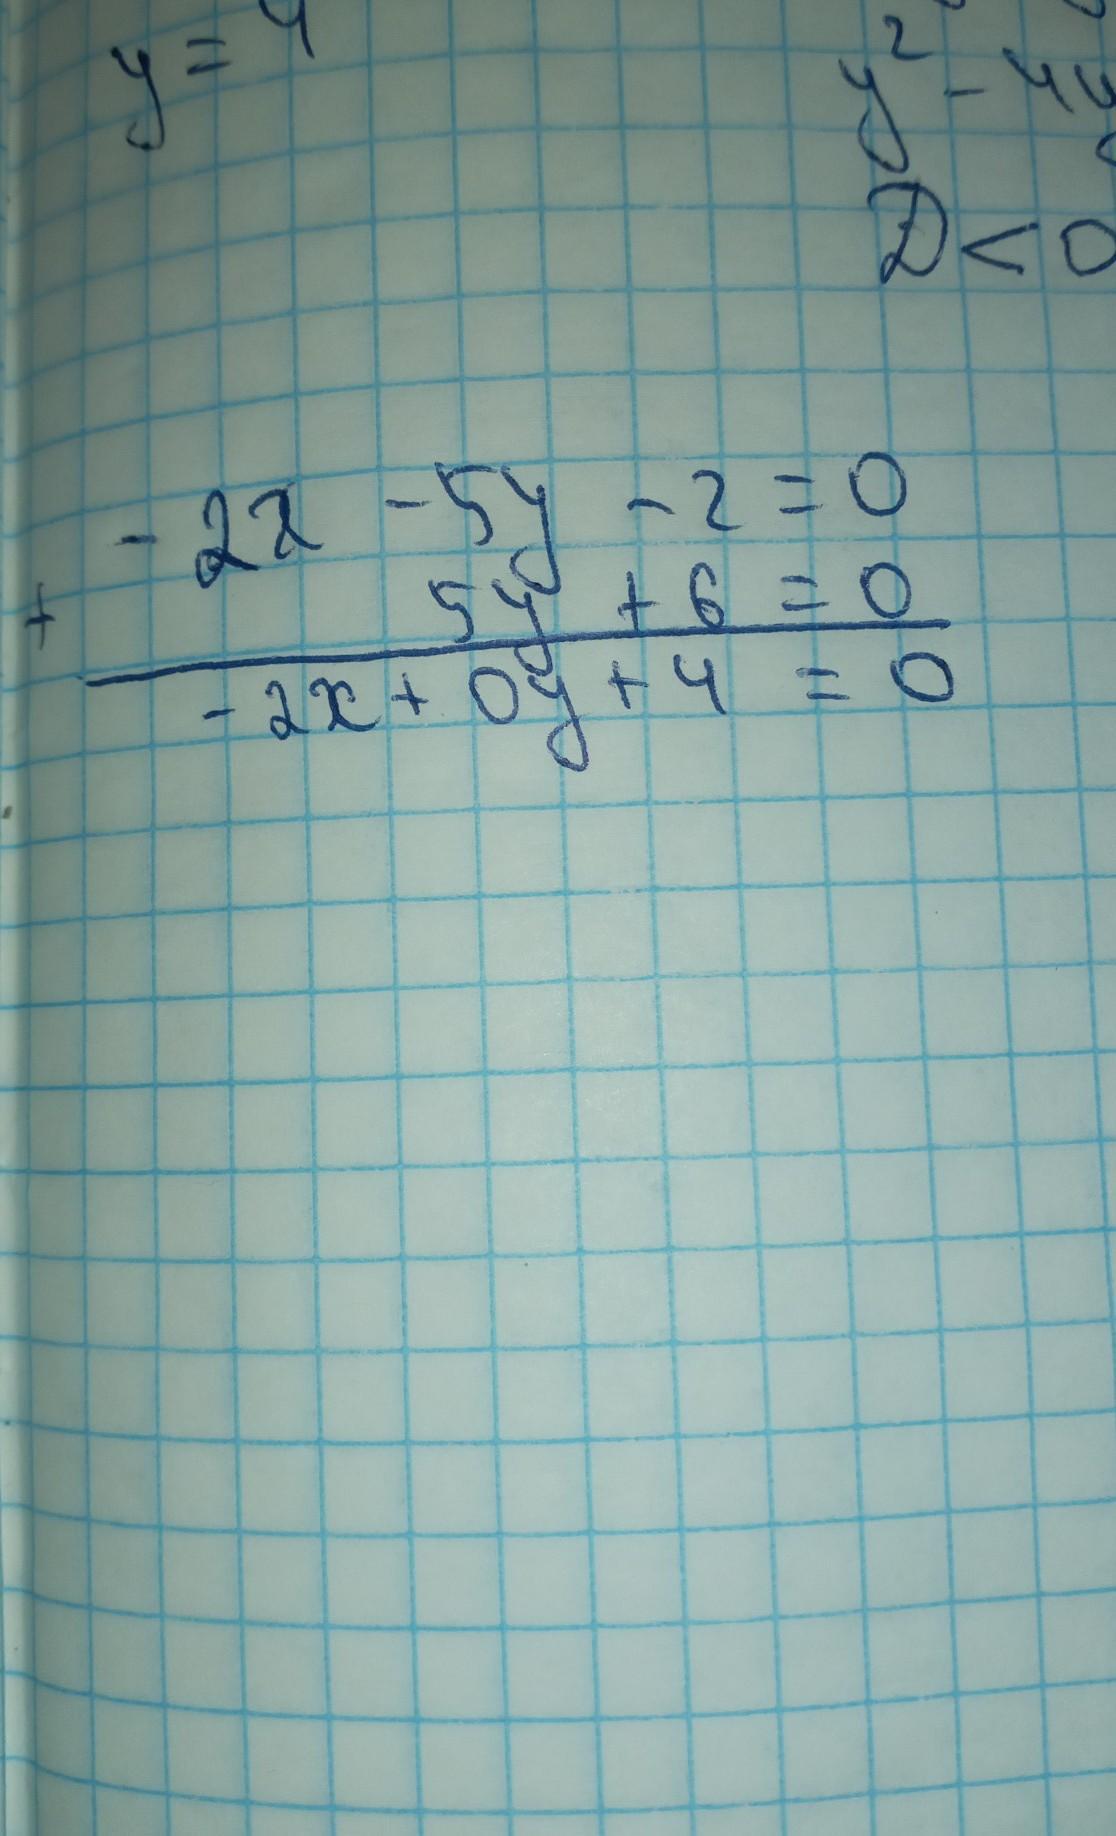 y = 4
y² - 4y
D < 0
- 2x - 5y - 2 = 0
+ 5y + 6 = 0
- 2x + 0y + 4 = 0